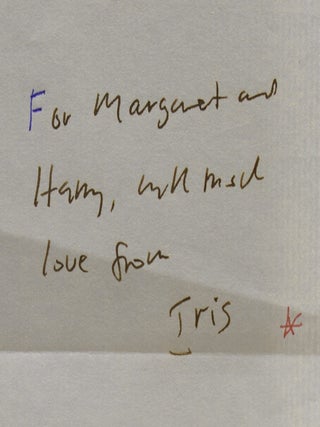 For Margaret and
Harry, with much
love from
Iris